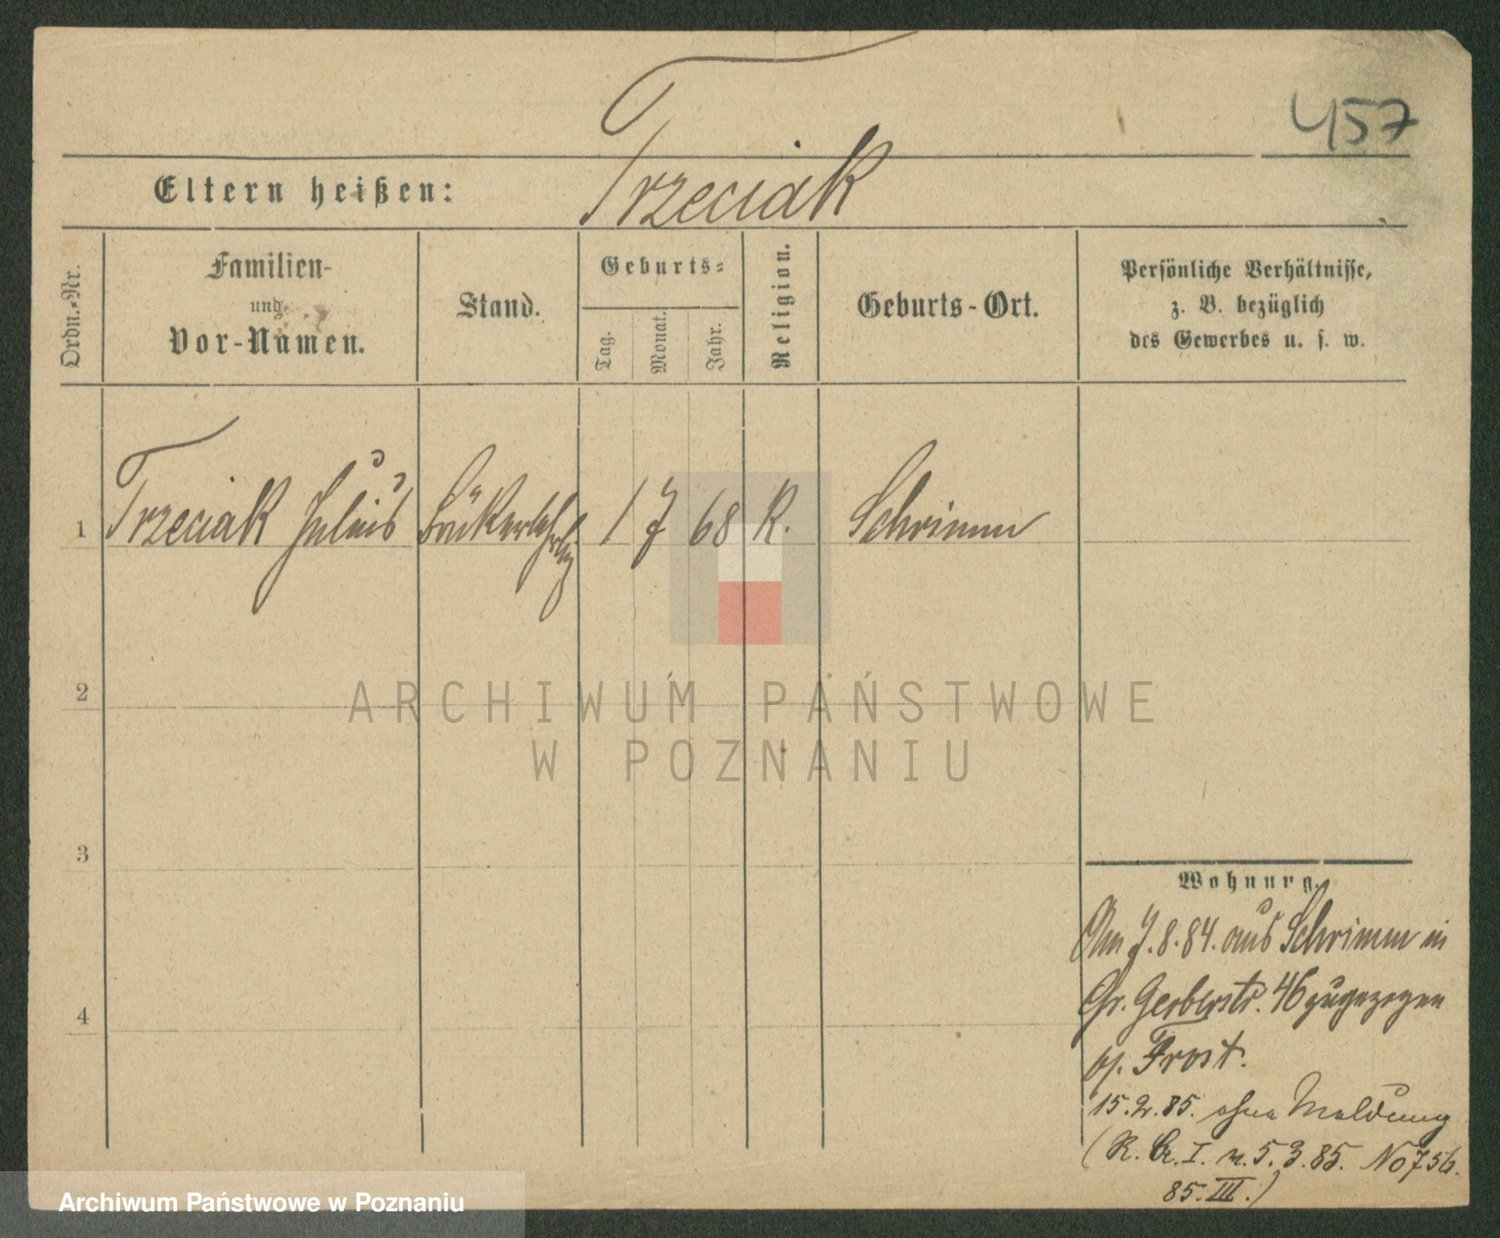 457
Trzeciak
Eltern heißen:
Ordn.-Nr.
Familien-
und
Vor-Namen.
Stand.
Geburts-
Tag.
Monat.
Jahr.
Religion.
Geburts-Ort.
Persönliche Verhältnisse,
z. B. bezüglich
des Gewerbes u. s. w.
1 Trzeciak Julius 1 7 68 K. Schrimm
2
3
4
ARCHIWUM PAŃSTWOWE
W POZNANIU
Wohnung.
Am 7.8.84. aus Schrimm in
Gr. Gerberstr. 46 zugezogen
Frost.
15.2.85. ohne Meldung
(R. I. 5.3.85. No 756.
85. III.)
Archiwum Państwowe w Poznaniu